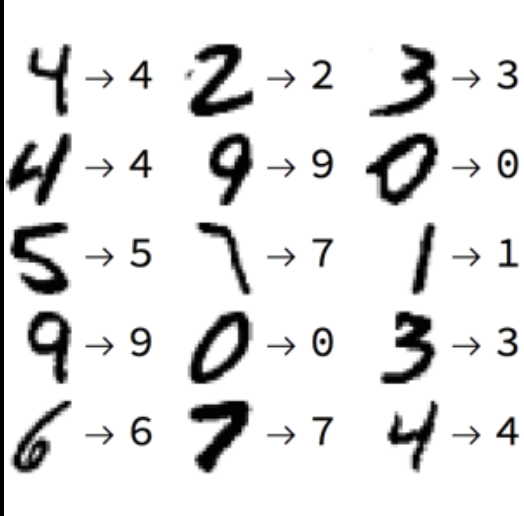 4 → 4 2 → 2 3 → 3
4 → 4 9 → 9 0 → 0
5 → 5 7 → 7 1 → 1
9 → 9 0 → 0 3 → 3
6 → 6 7 → 7 4 → 4